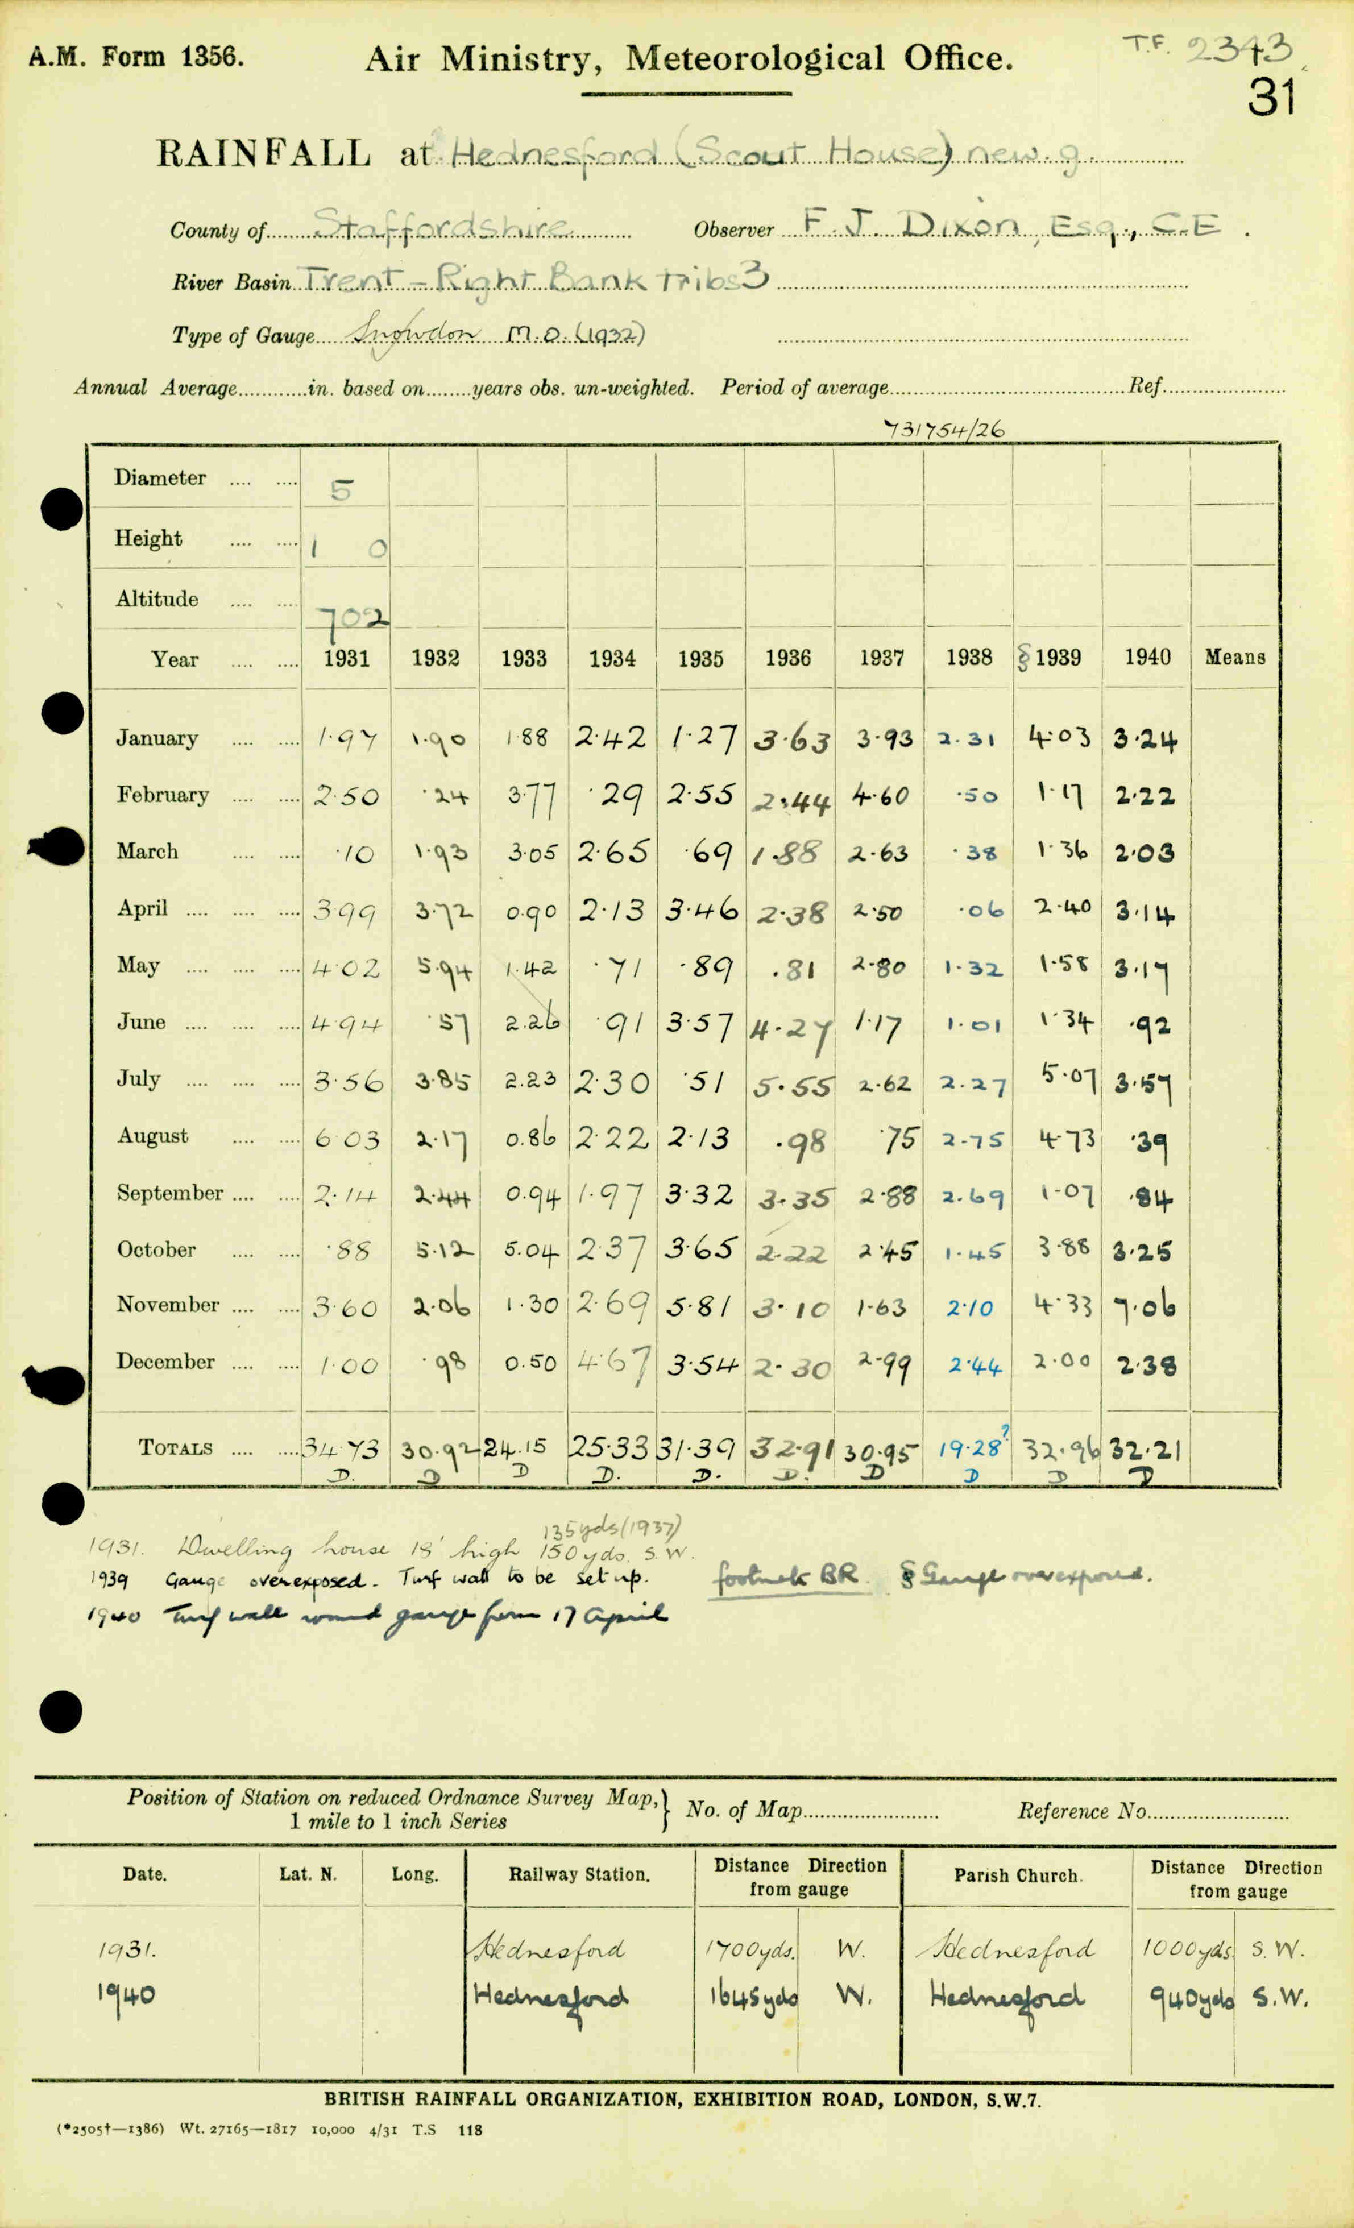 A.M. Form 1356. Air Ministry, Meteorological Office. T.F. 2343
31
RAINFALL at Hednesford (Scout House) new. g.
County of Staffordshire Observer F. J. Dixon, Esq., C.E.
River Basin Trent – Right Bank tribs 3
Type of Gauge Snowdon M.O. (1932)
Annual Average in. based on years obs. un-weighted. Period of average Ref.
731754/26
Diameter 5
Height 1 0
Altitude 702
Year 1931 1932 1933 1934 1935 1936 1937 1938 § 1939 1940 Means
January 1.97 1.90 1.88 2.42 1.27 3.63 3.93 2.31 4.03 3.24
February 2.50 .24 3.77 .29 2.55 2.44 4.60 .50 1.17 2.22
March .10 1.93 3.05 2.65 .69 1.88 2.63 .38 1.36 2.03
April 3.99 3.72 0.90 2.13 3.46 2.38 2.50 .06 2.40 3.14
May 4.02 5.94 1.42 .71 .89 .81 2.80 1.32 1.58 3.17
June 4.94 .57 2.26 .91 3.57 4.27 1.17 1.01 1.34 .92
July 3.56 3.85 2.23 2.30 .51 5.55 2.62 2.27 5.07 3.57
August 6.03 2.17 0.86 2.22 2.13 .98 .75 2.75 4.73 .39
September 2.14 2.44 0.94 1.97 3.32 3.35 2.88 2.69 1.07 .84
October .88 5.12 5.04 2.37 3.65 2.22 2.45 1.45 3.88 3.25
November 3.60 2.06 1.30 2.69 5.81 3.10 1.63 2.10 4.33 7.06
December 1.00 .98 0.50 4.67 3.54 2.30 2.99 2.44 2.00 2.38
TOTALS 34.73 30.92 24.15 25.33 31.39 32.91 30.95 19.28? 32.96 32.21
D. D D D. D. D. D D D D
135yds (1937)
1931. Dwelling house 18' high 150yds. S.W.
1939 Gauge overexposed. Turf wall to be set up. footnote BR § Gauge overexposed.
1940 Turf wall round gauge from 17 April
Position of Station on reduced Ordnance Survey Map,} No. of Map Reference No.
1 mile to 1 inch Series
Date. Lat. N. Long. Railway Station. Distance Direction from gauge Parish Church. Distance Direction from gauge
1931. Hednesford 1700yds. W. Hednesford 1000yds S.W.
1940 Hednesford 1645yds W. Hednesford 940yds S.W.
BRITISH RAINFALL ORGANIZATION, EXHIBITION ROAD, LONDON, S.W.7.
(*2505†—1386) Wt. 27165—1817 10,000 4/31 T.S 118